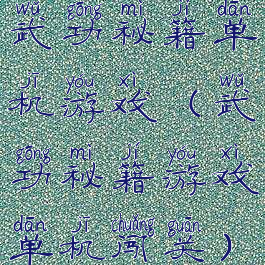 wǔ gōng mì jí dān
武功秘籍单
jī yóu xì wǔ
机游戏（武
gōng mì jí yóu xì
功秘籍游戏
dān jī chuǎng guān
单机闯关）